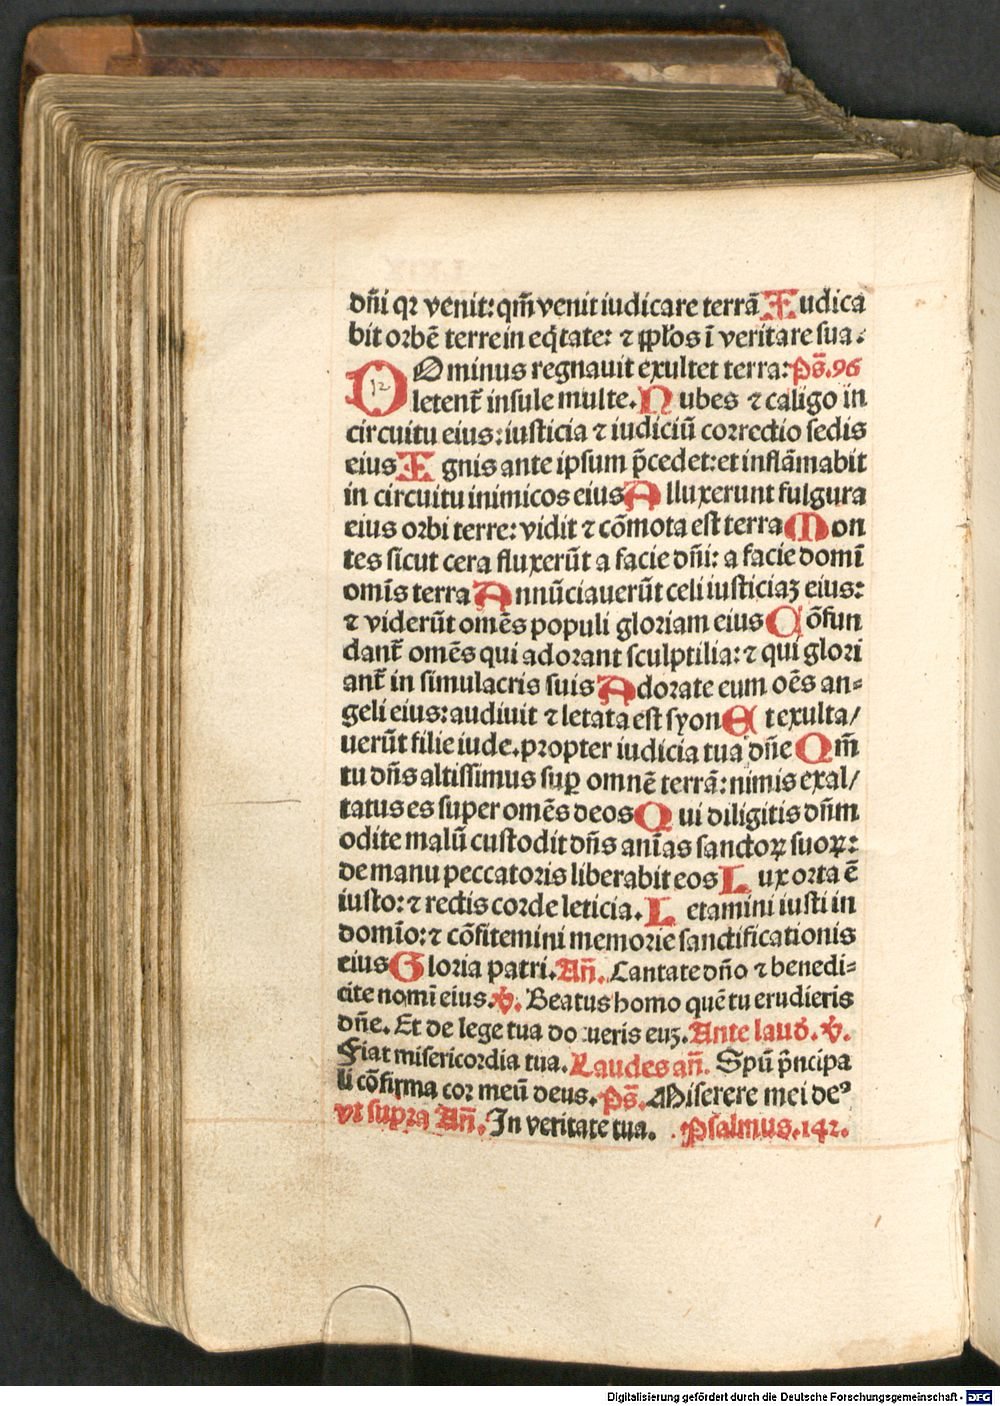 dn̄i qꝛ venit: qm̄ venit iudicare terrā Iudica
bit orbē terre in eq̇tate: ⁊ pp̄los ī veritate sua.
Dominus regnauit exultet terra: Ps̄.96
12 letent̄ insule multe. Nubes ⁊ caligo in
circuitu eius: iusticia ⁊ iudiciū correctio sedis
eius Ignis ante ipsum p̄cedet: et inflāmabit
in circuitu inimicos eius Alluxerunt fulgura
eius orbi terre: vidit ⁊ cōmota est terra Mon
tes sicut cera fluxerūt a facie dn̄i: a facie domī
omīs terra Annūciauerūt celi iusticiaꝫ eius:
⁊ viderūt omēs populi gloriam eius Cōfun
dant̄ omēs qui adorant sculptilia: ⁊ qui glori
ant̄ in simulacris suis Adorate eum oēs an-
geli eius: audiuit ⁊ letata est syon Et exulta/
uerūt filie iude. propter iudicia tua dn̄e Qm̄
tu dn̄s altissimus suꝑ omnē terrā: nimis exal/
tatus es super omēs deos Qui diligitis dn̄m
odite malū custodit dn̄s anīas sanctoꝝ suoꝝ:
de manu peccatoris liberabit eos Lux orta ē
iusto: ⁊ rectis corde leticia. Letamini iusti in
domīo: ⁊ cōfitemini memorie sanctificationis
eius Gloria patri. An̄. Cantate dn̄o ⁊ benedi-
cite nomī eius. ℣. Beatus homo quē tu erudieris
dn̄e. Et de lege tua docueris euꝫ. Ante laud. ℣.
Fiat misericordia tua. Laudes an̄. Spū p̄ncipa
li cōfirma cor meū deus. Ps̄. Miserere mei deꝰ
vt supra An̄. In veritate tua. Psalmus.142.
Digitalisierung gefördert durch die Deutsche Forschungsgemeinschaft - DFG